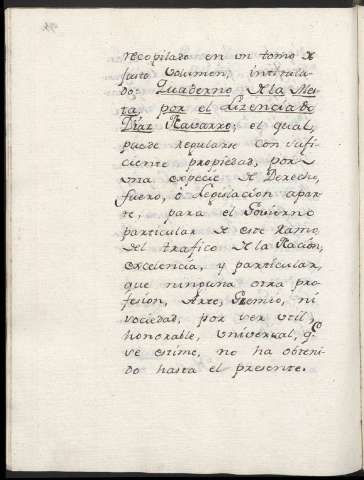 recopilado en un tomo de
justo volumen, intitula-
do: Quaderno de la Mes-
ta, por el Licenciado
Diaz Navarro; el qual,
puede regularse con sufi-
ciente propiedad, por
una especie de Derecho,
fuero, ò Legislacion apar-
te, para el Govierno
particular de este Ramo
del trafico de la Nacion,
excelencia, y particular,
que ninguna otra pro-
fesion, Arte, Gremio, ni
sociedad, por ser util,
honorable, universal, q.e
se estime, no ha obteni-
do hasta el presente.